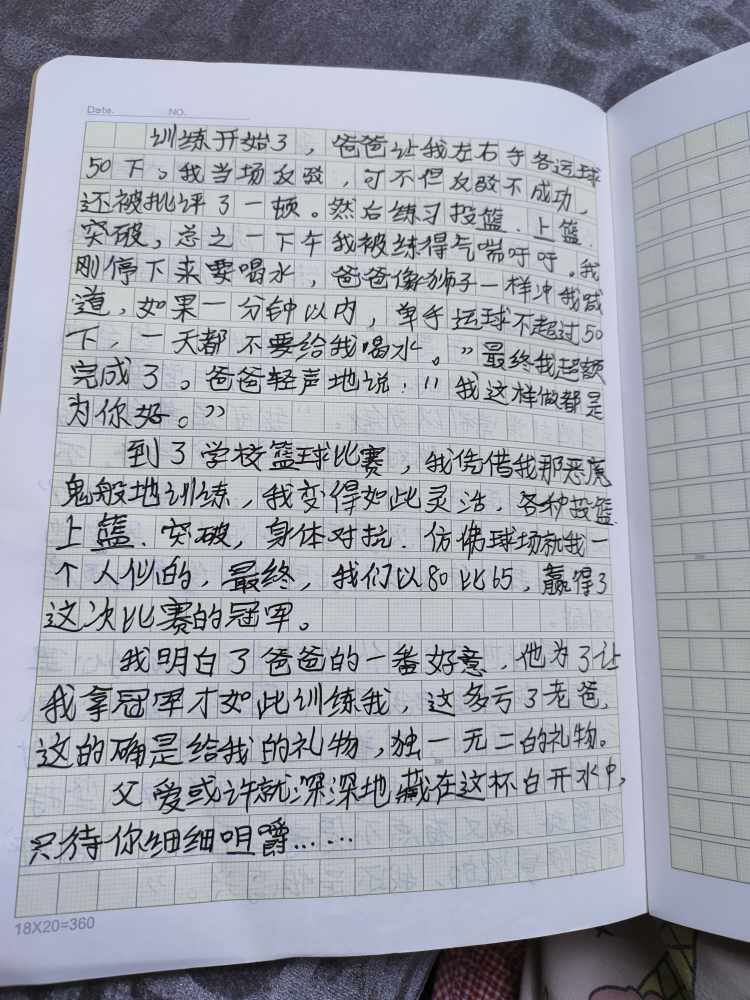 Date. NO.
训练开始了，爸爸让我左右手各运球
50下。我当场反驳，可不但反驳不成功，
还被批评了一顿。然后练习投篮．上篮．
突破，总之一下午我被练得气喘吁吁。我
刚停下来要喝水，爸爸像狮子一样冲我喊
道，如果一分钟以内，单手运球不超过50
下，一天都不要给我喝水。”最终我超额
完成了。爸爸轻声地说：“我这样做都是
为你好。”
到了学校篮球比赛，我凭借我那恶魔
鬼般地训练，我变得如此灵活，各种投篮
上篮．突破，身体对抗．仿佛球场就我一
个人似的，最终，我们以80比65，赢得了
这次比赛的冠军。
我明白了爸爸的一番好意，他为了让
我拿冠军才如此训练我，这多亏了老爸，
这的确是给我的礼物，独一无二的礼物。
父爱或许就深深地藏在这杯白开水中，
只待你细细咀嚼……
18X20=360